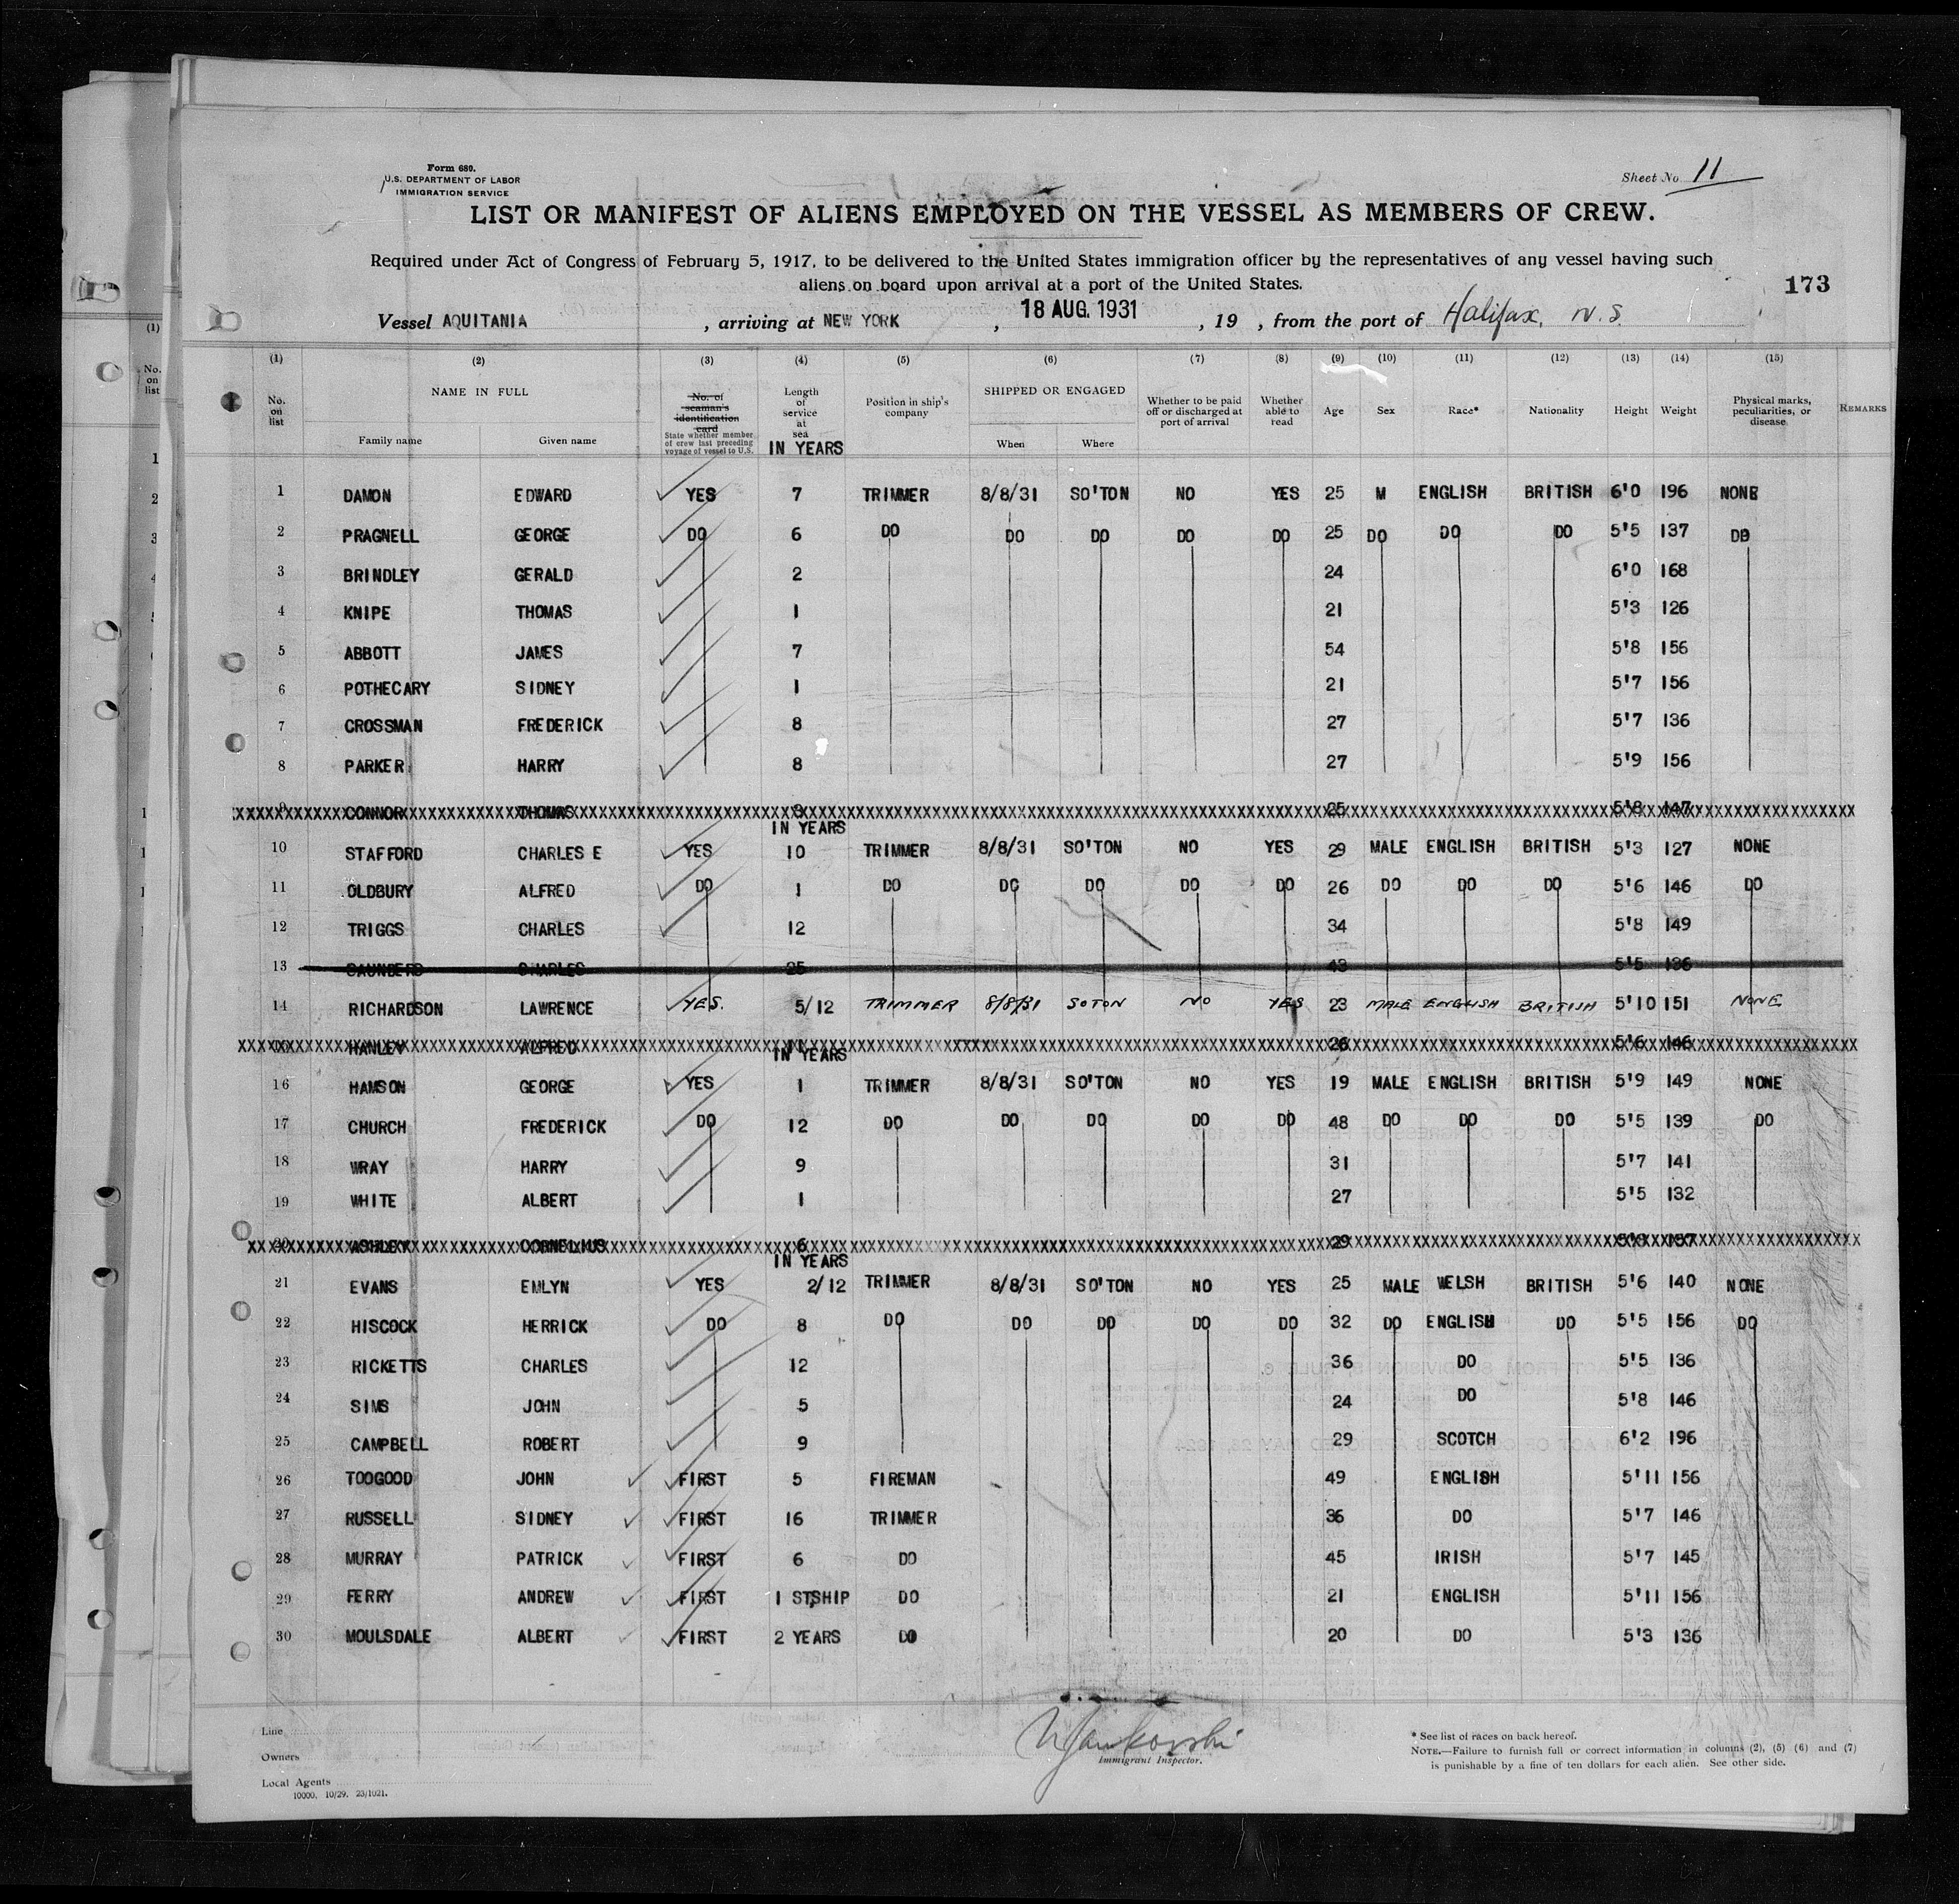 Form 680.
U.S. DEPARTMENT OF LABOR
IMMIGRATION SERVICE
Sheet No. 11
LIST OR MANIFEST OF ALIENS EMPLOYED ON THE VESSEL AS MEMBERS OF CREW.
Required under Act of Congress of February 5, 1917, to be delivered to the United States immigration officer by the representatives of any vessel having such
aliens on board upon arrival at a port of the United States.
173
Vessel AQUITANIA , arriving at NEW YORK , 18 AUG. 1931 , 19 , from the port of Halifax, N.S.
(1) (2) (3) (4) (5) (6) (7) (8) (9) (10) (11) (12) (13) (14) (15)
No. on list NAME IN FULL Family name Given name No. of seaman's identification card State whether member of crew last preceding voyage of vessel to U.S. Length of service at sea IN YEARS Position in ship's company SHIPPED OR ENGAGED When Where Whether to be paid off or discharged at port of arrival Whether able to read Age Sex Race* Nationality Height Weight Physical marks, peculiarities, or disease REMARKS
1 DAMON EDWARD YES 7 TRIMMER 8/8/31 SO'TON NO YES 25 M ENGLISH BRITISH 6'0 196 NONE
2 PRAGNELL GEORGE DO 6 DO DO DO DO DO 25 DO DO DO 5'5 137 DO
3 BRINDLEY GERALD 2 24 6'0 168
4 KNIPE THOMAS 1 21 5'3 126
5 ABBOTT JAMES 7 54 5'8 156
6 POTHECARY SIDNEY 1 21 5'7 156
7 CROSSMAN FREDERICK 8 27 5'7 136
8 PARKER HARRY 8 27 5'9 156
9 CONNOR THOMAS 3 25 5'8 147
IN YEARS
10 STAFFORD CHARLES E YES 10 TRIMMER 8/8/31 SO'TON NO YES 29 MALE ENGLISH BRITISH 5'3 127 NONE
11 OLDBURY ALFRED DO 1 DO DO DO DO DO 26 DO DO DO 5'6 146 DO
12 TRIGGS CHARLES 12 34 5'8 149
13 SAUNDERS CHARLES 25 43 5'5 136
14 RICHARDSON LAWRENCE YES. 5/12 TRIMMER 8/8/31 SOTON NO YES 23 MALE ENGLISH BRITISH 5'10 151 NONE
HANLEY ALFRED 26 5'6 146
IN YEARS
16 HAMSON GEORGE YES 1 TRIMMER 8/8/31 SO'TON NO YES 19 MALE ENGLISH BRITISH 5'9 149 NONE
17 CHURCH FREDERICK DO 12 DO DO DO DO DO 48 DO DO DO 5'5 139 DO
18 WRAY HARRY 9 31 5'7 141
19 WHITE ALBERT 1 27 5'5 132
20 ASHLEY CORNELIUS 6 29 157
IN YEARS
21 EVANS EMLYN YES 2/12 TRIMMER 8/8/31 SO'TON NO YES 25 MALE WELSH BRITISH 5'6 140 NONE
22 HISCOCK HERRICK DO 8 DO DO DO DO DO 32 DO ENGLISH DO 5'5 156 DO
23 RICKETTS CHARLES 12 36 DO 5'5 136
24 SIMS JOHN 5 24 DO 5'8 146
25 CAMPBELL ROBERT 9 29 SCOTCH 6'2 196
26 TOOGOOD JOHN FIRST 5 FIREMAN 49 ENGLISH 5'11 156
27 RUSSELL SIDNEY FIRST 16 TRIMMER 36 DO 5'7 146
28 MURRAY PATRICK FIRST 6 DO 45 IRISH 5'7 145
29 FERRY ANDREW FIRST 1 STSHIP DO 21 ENGLISH 5'11 156
30 MOULSDALE ALBERT FIRST 2 YEARS DO 20 DO 5'3 136
Line
Owners
Local Agents
10000. 10/29. 23/1021.
Immigrant Inspector.
* See list of races on back hereof.
NOTE.—Failure to furnish full or correct information in columns (2), (5) (6) and (7)
is punishable by a fine of ten dollars for each alien. See other side.